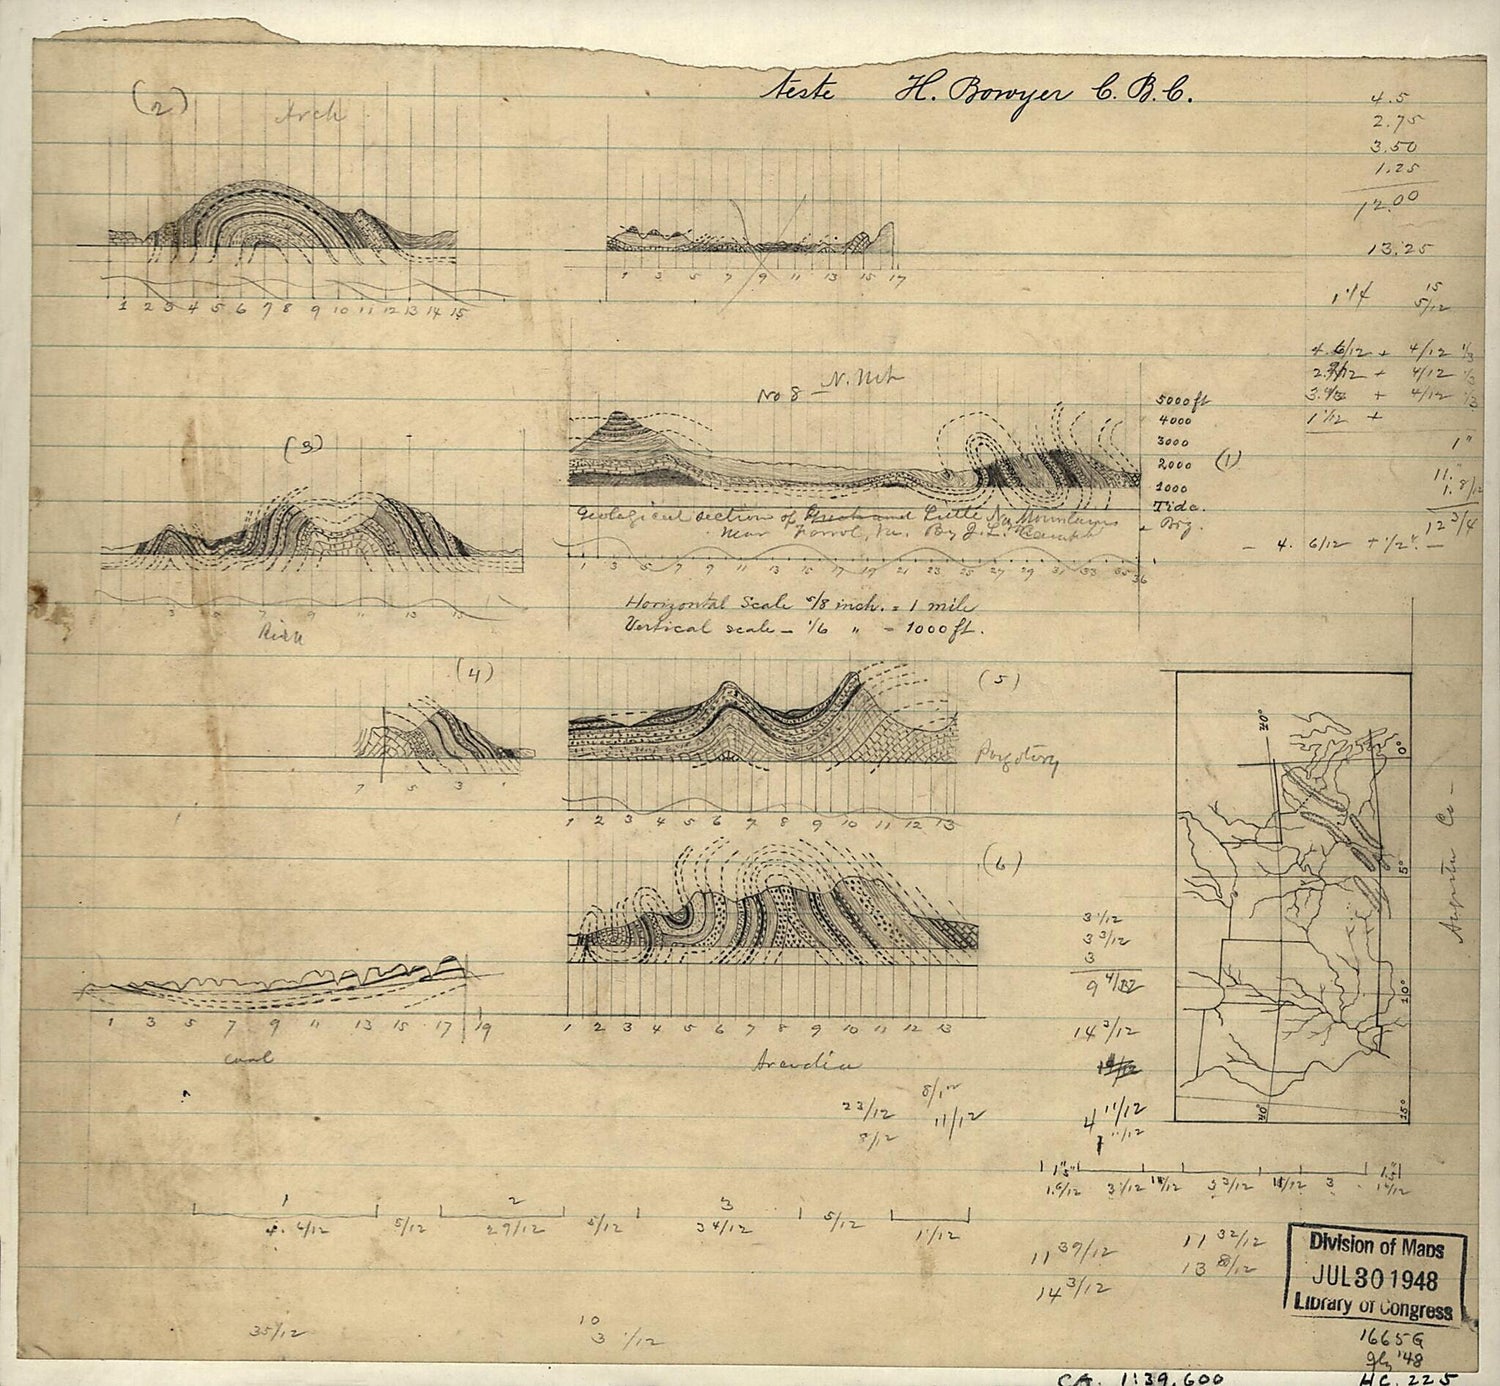 teste H. Bowyer C. B. C.
4.5
2.75
3.50
1.25
12.00
13.25
(2)
Arch
1 2 3 4 5 6 7 8 9 10 11 12 13 14 15
1 3 5 7 9 11 13 15 17
1 1/4 15
5/12
4. 6/12 + 4/12 1/3
4/12
4/12
1 1/12 +
1"
11."
1. 8/12
12 3/4
No 8 — N. Mt
5000 ft
4000
3000
2000 (1)
1000
Tide.
Geological section of and Little No. Mountains
near Va. By J. L.
- 4. 6/12 + 1/2". —
1 3 5 7 9 11 13 15 17 19 21 23 25 27 29 31 33 35 36
Horizontal Scale 5/8 inch. = 1 mile
Vertical scale — 1/6 " — 1000 ft.
(3)
3 5 7 9 11 13 15
(4)
7 5 3
(5)
1 2 3 4 5 6 7 8 9 10 11 12 13
(6)
1 2 3 4 5 6 7 8 9 10 11 12 13
Arcadia
1 3 5 7 9 11 13 15 17 19
coal
40°
0°
5°
10°
15°
40°
Augusta Co —
3 1/12
3 3/12
3
9 4/12
14 3/12
4 11/12
11/12
23/12
8/12
8/12
11/12
1.5" 1.5"
1.6/12 3 1/12 3 3/12 3
1 2 3
4. 6/12 5/12 2 9/12 5/12 3 4/12 5/12 1 1/12
11 39/12 11 32/12
14 3/12 13 8/12
35/12
10
3 1/12
Division of Maps
JUL 30 1948
Library of Congress
1665G
'48
CA. 1:39,600 HC. 225